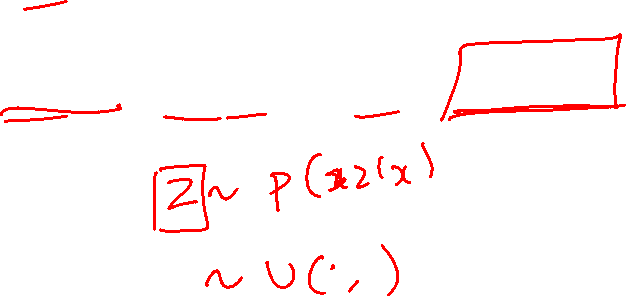 z ~ p(z|x)
~ U(·,)